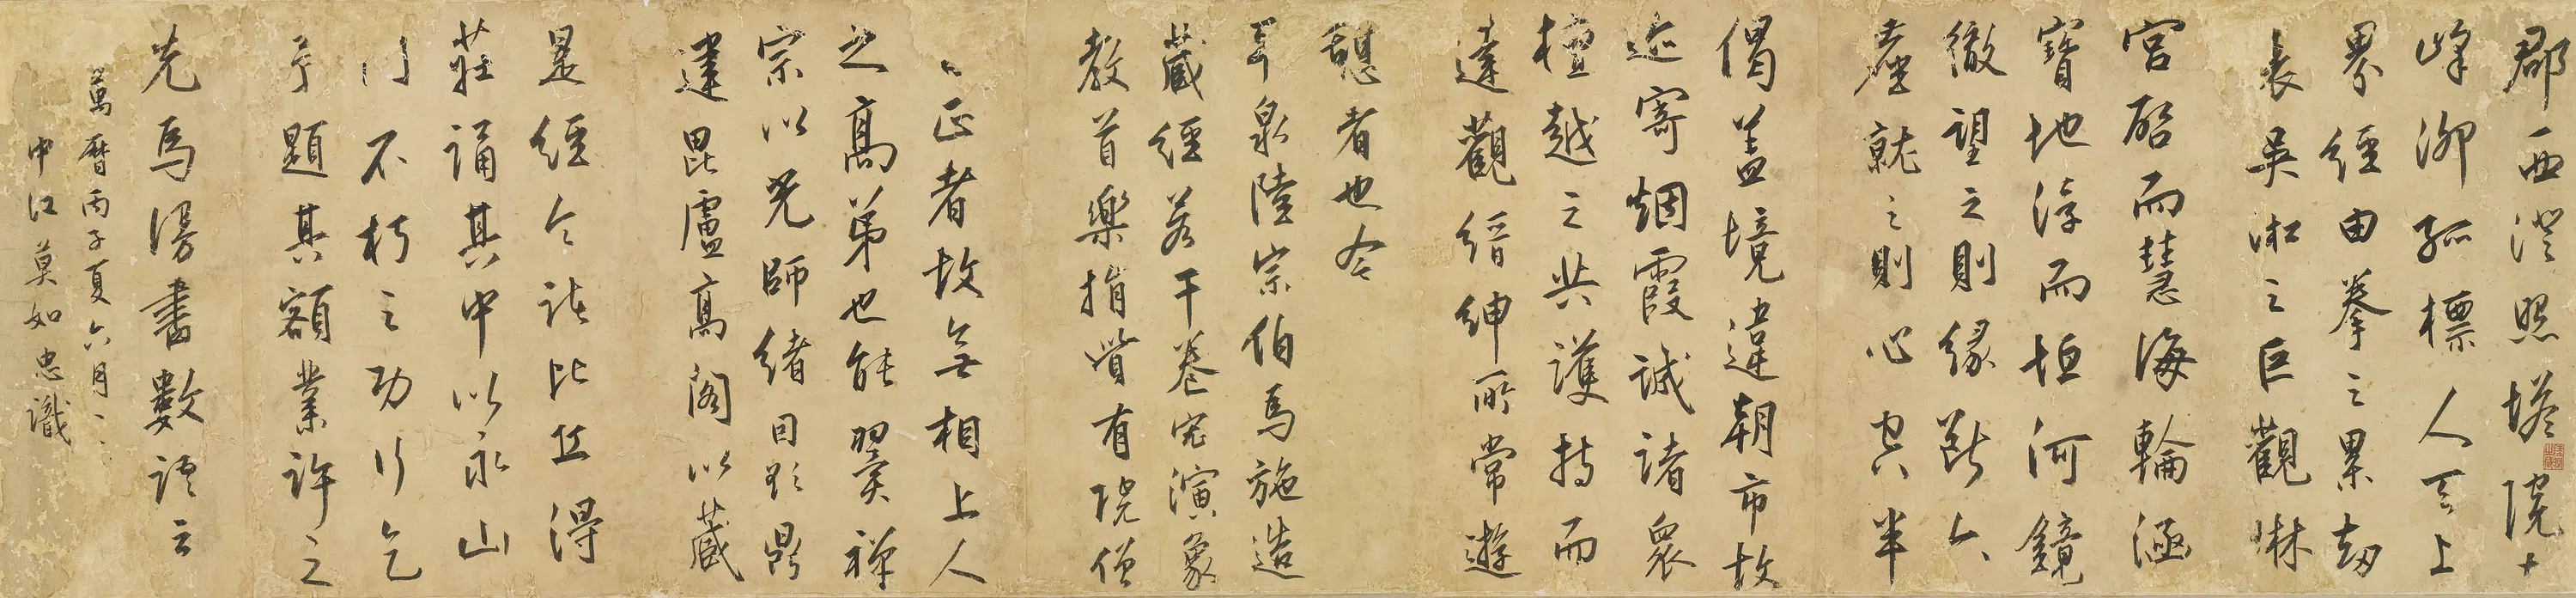 郡西澄照塔院十
峰泖孤標人天上
界經由拳之累劫
表吳淞之巨觀淋
宮啓而慧海輪涵
寶地淳而恒河鏡
徹望之則緣斷六
塵就之則心空半
偈蓋境違朝市故
迹寄烟霞誠諸衆
檀越之共護持而
達觀縉紳所常遊
憩者也今
平泉陸宗伯馬施造
藏經若干卷宏演象
教首樂捐貲有院僧
正者故無相上人
之高弟也能翼禪
宗以光師緒因欲鼎
建毘盧高閣以藏
是經令諸比丘得
莊誦其中以永山
門不朽之功行乞
予題其額業許之
先爲漫書數語云
萬曆丙子夏六月
中江莫如忠識